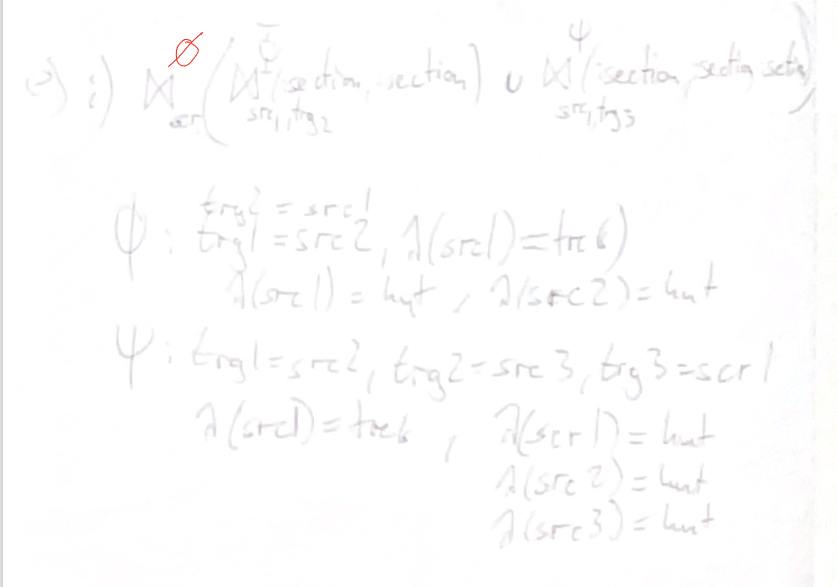 i) ⋈^∅_{scr} ( ⋈_{src1, trg2} (section, section) ∪ ⋈^ψ_{src1, trg3} (section, section, section)
trg2 = src1
ϕ : trg1 = src2, λ(src1) = )
λ(src1) = hut , λ(src2) = hut
ψ : trg1 = src2, trg2 = src3, trg3 = scr1
λ(src1) = , λ(scr1) = hut
λ(src2) = hut
λ(src3) = hut